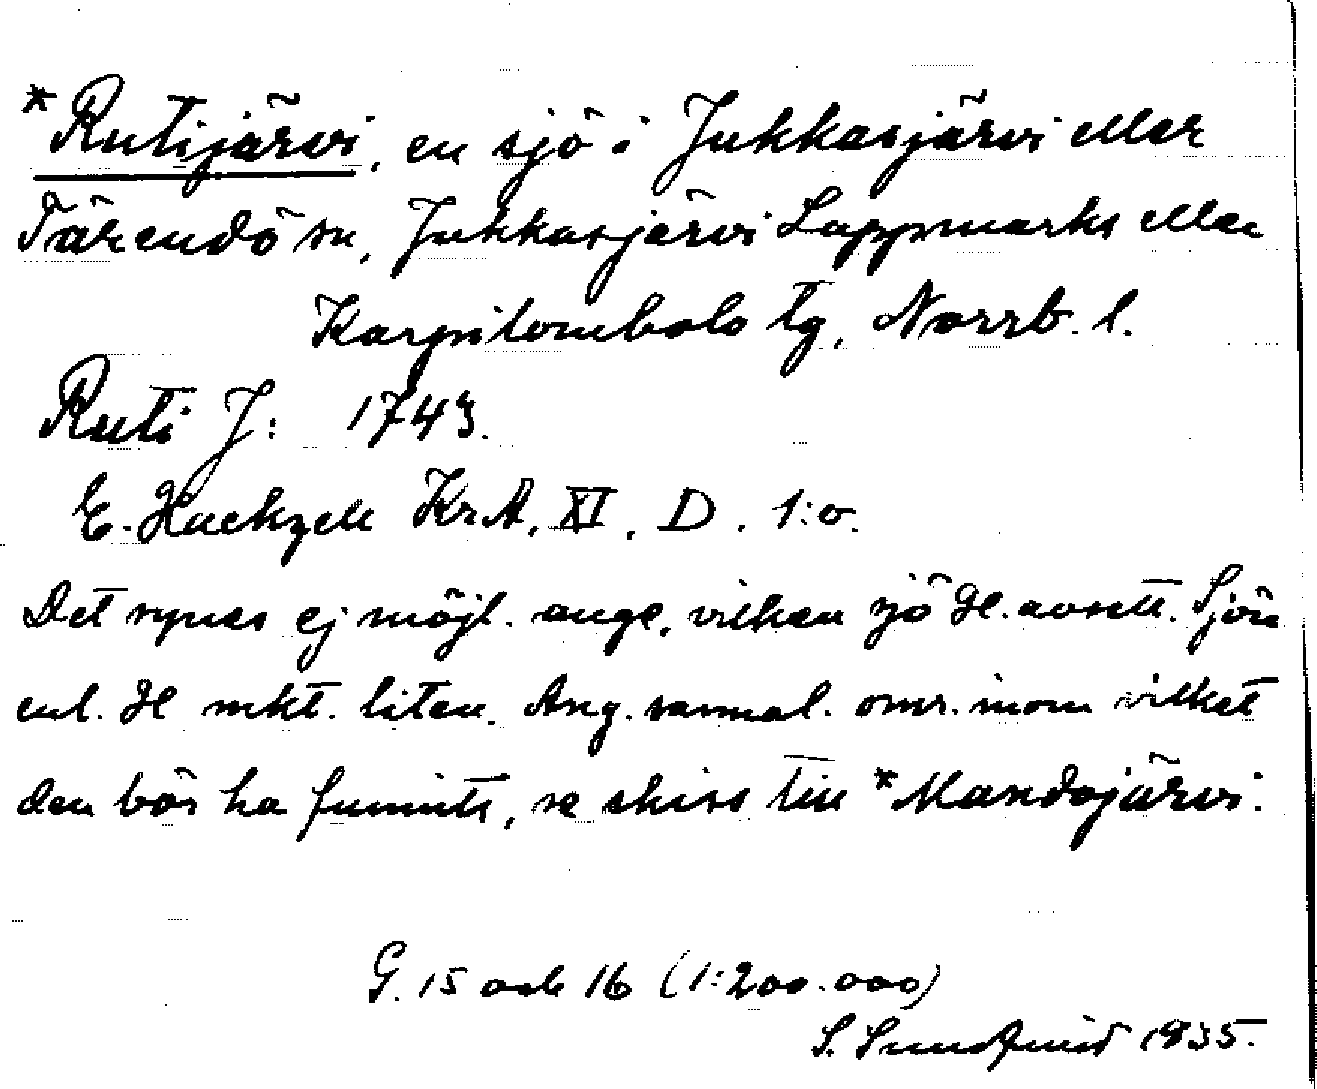 *Rutijärvi, en sjö i Jukkasjärvi eller
Tärendö sn, Jukkasjärvi Lappmarks eller
Korpilombolo tg, Norrb. l.
Ruti J: 1743.
E. Hackzell KrA. XI. D. 1:o.
Det synes ej möjl. ange, vilken sjö H. avsett. Sjön
enl. H mkt. liten. Ang. sannol. omr. inom vilket
den bör ha funnits, se skiss till *Mandojärvi.
G. 15 och 16 (1:200.000)
S. Sundqvist 1935.